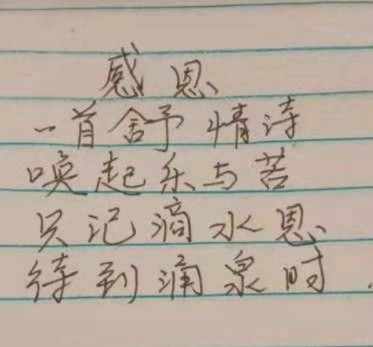 感恩
一首舒情诗
唤起乐与苦
只记滴水恩
待到涌泉时.